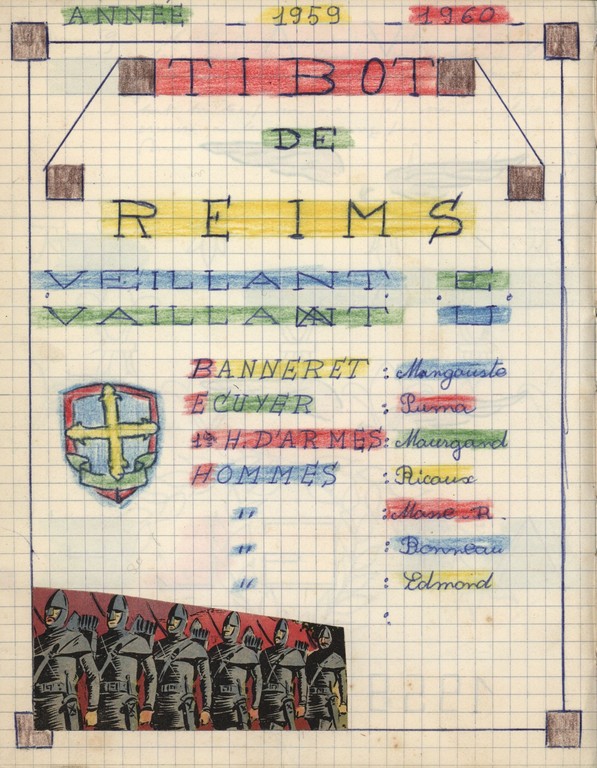 ANNÉE — 1959 — 1960 —
TIBOT
DE
REIMS
VEILLANT E
: : :
VAILLANT U
BANNERET : Mangouste
ECUYER : Puma
1er H. D'ARMES : Maurgand
HOMMES : Ricaux
" : R.
" : Bonneau
" : Edmond
: